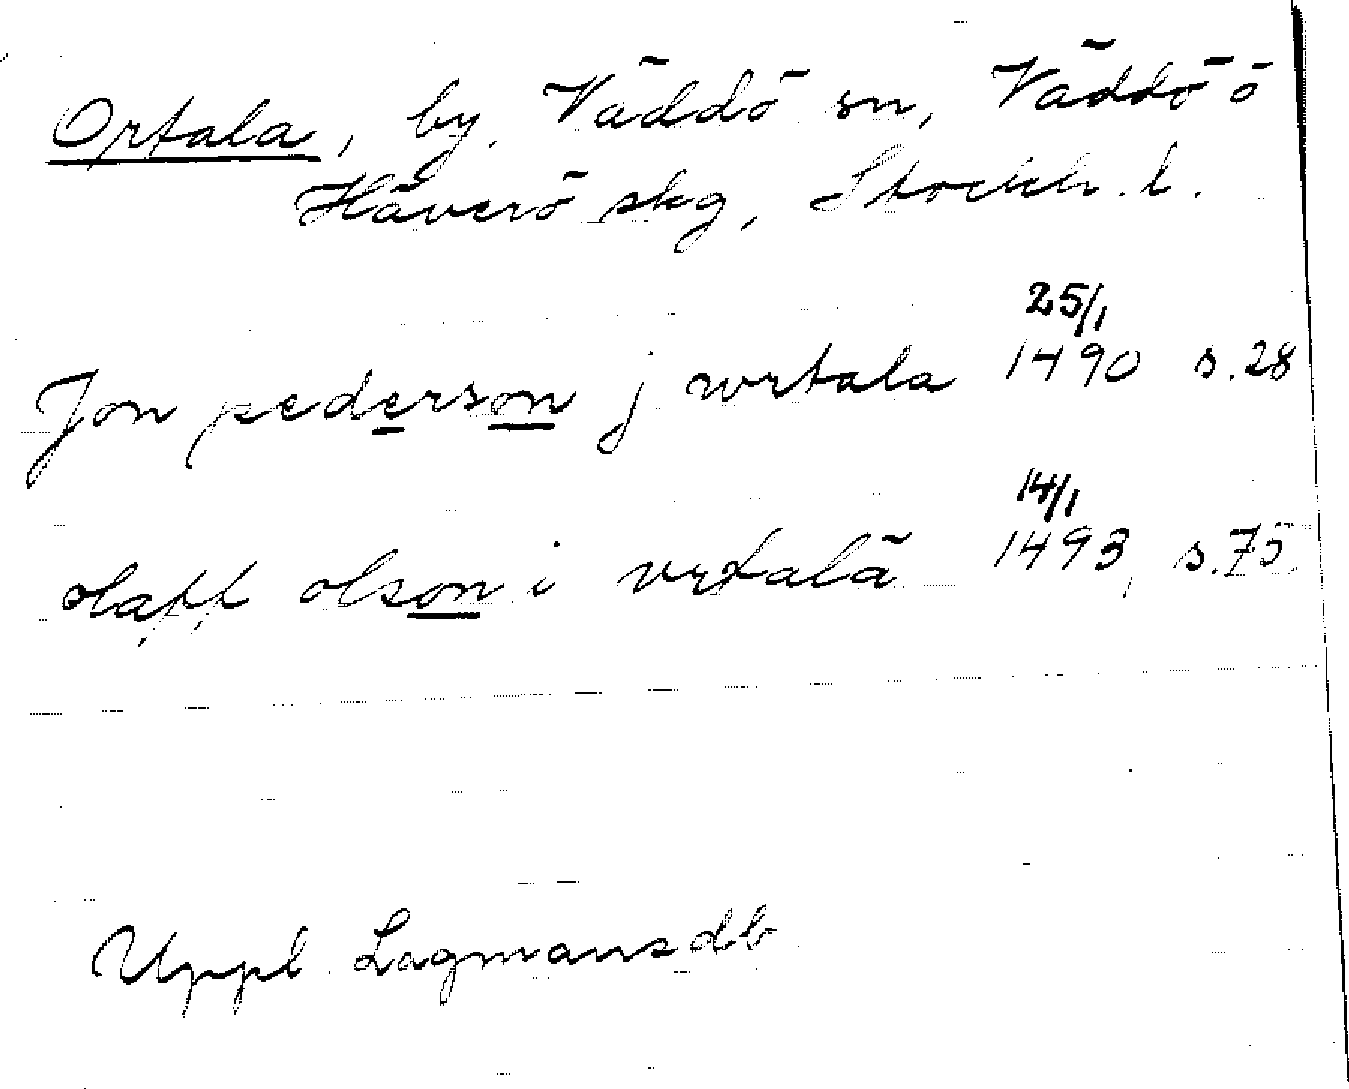 Ortala, by, Väddö sn, Väddö o
Häverö skg, Stockh. l.
25/1
Jon pederson j wrtala 1490 s. 28
14/1
olaff olson i vrtalā 1493, s. 75
Uppl Lagmansdb